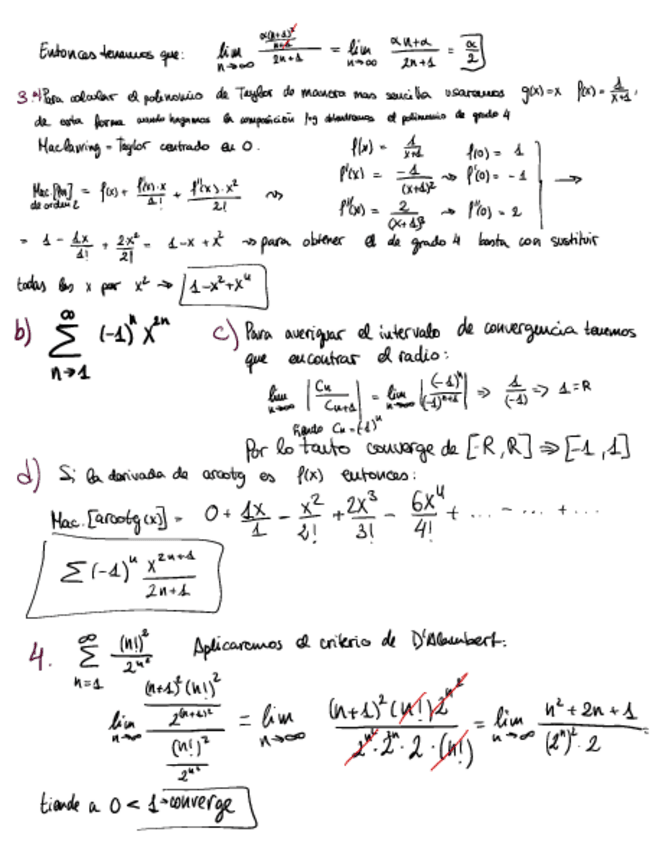 Entonces tenemos que: lim n→∞ (α(n+1)²/(n+1))/(2n+1) = lim n→∞ (αn+α)/(2n+1) = α/2
3. a) Para calcular el polinomio de Taylor de manera mas sencilla usaremos g(x)=x f(x)=1/(x+1),
de esta forma cuando hagamos la composición f∘g obtendremos el polinomio de grado 4
= Taylor centrado en 0. f(x) = 1/(x+1) f(0) = 1
f'(x) = -1/(x+1)² → f'(0) = -1
Mac.[f(x)] de orden 2 = f(x) + f'(x)·x/1! + f''(x)·x²/2! ⇝ f''(x) = 2/(x+1)³ → f''(0) = 2 →
= 1 - 1x/1! + 2x²/2! = 1-x+x² → para obtener el de grado 4 basta con sustituir
todas las x por x² → 1-x²+x⁴
b) ∑ n→1 ∞ (-1)ⁿ x²ⁿ c) Para averiguar el intervalo de convergencia tenemos
que encontrar el radio:
lim n→∞ |Cn/Cn+1| = lim n→∞ |(-1)ⁿ/(-1)ⁿ⁺¹| ⇒ 1/(-1) => 1=R
siendo Cn=(-1)ⁿ
Por lo tanto converge de [-R,R] ⇒ [-1,1]
d) Si la derivada de arcotg es f(x) entonces:
Mac.[arcotg(x)] = 0 + 1x/1 - x²/2! + 2x³/3! - 6x⁴/4! + ... - ... + ...
∑(-1)ⁿ x²ⁿ⁺¹/(2n+1)
4. ∑ n=1 ∞ (n!)²/2^(n²) Aplicaremos el criterio de D'Alambert:
lim n→∞ ((n+1)²(n!)²/2^((n+1)²))/((n!)²/2^(n²)) = lim n→∞ (n+1)²(n!)2^(n²)/(2^(n²)·2ⁿ·2·(n!)) = lim n→∞ (n²+2n+1)/((2ⁿ)²·2)
tiende a 0 < 1 → converge